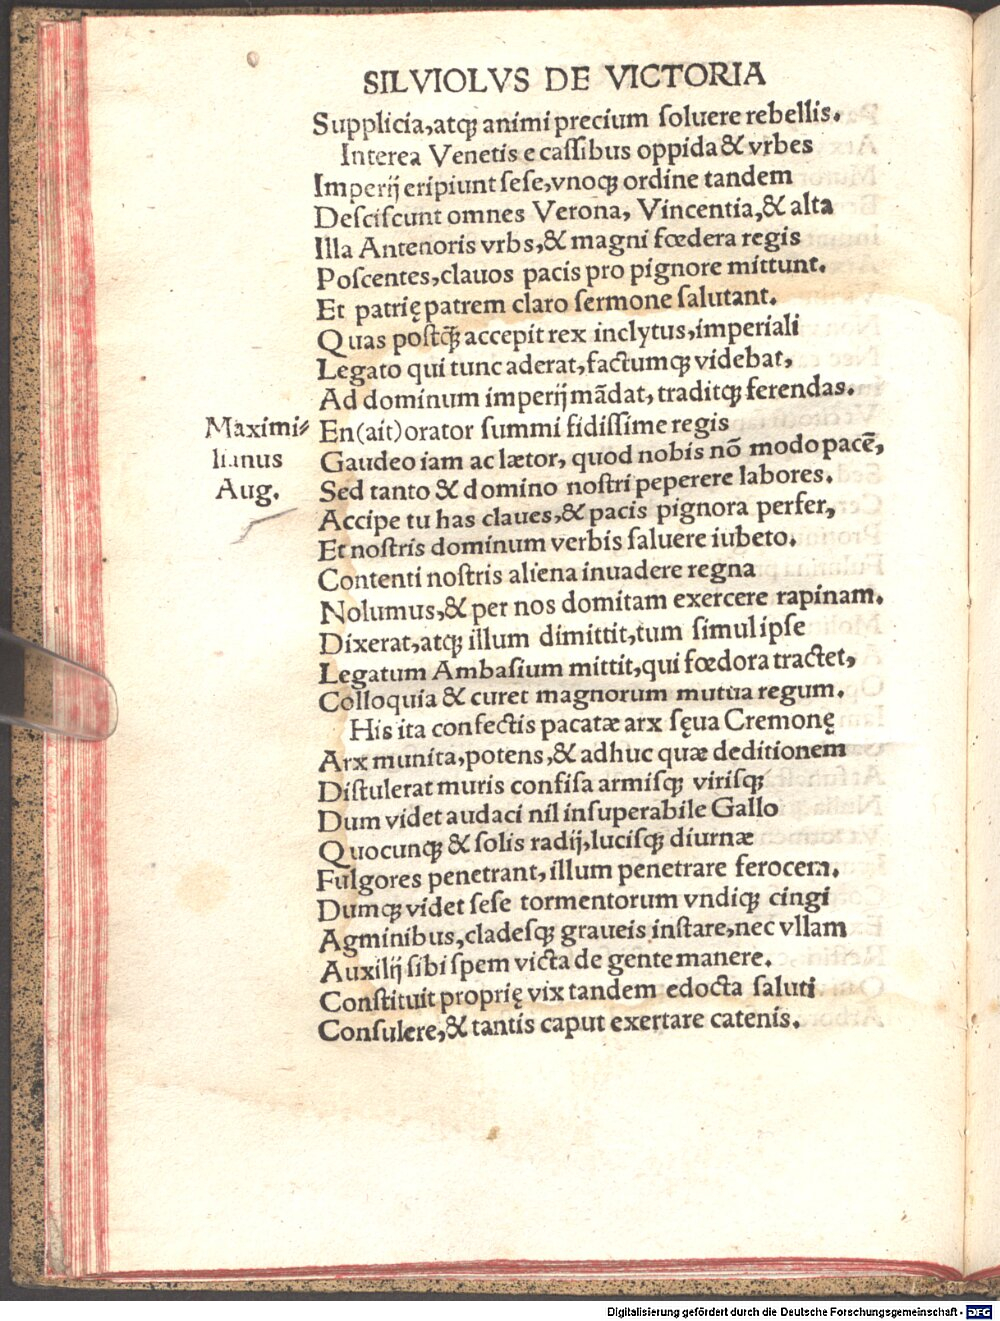 SILVIOLVS DE VICTORIA
Supplicia,atqꝫ animi precium ſoluere rebellis.
Interea Venetis e caſſibus oppida & vrbes
Imperij eripiunt ſeſe,vnoqꝫ ordine tandem
Deſciſcunt omnes Verona, Vincentia,& alta
Illa Antenoris vrbs,& magni fœdera regis
Poſcentes,clauos pacis pro pignore mittunt.
Et patrię patrem claro ſermone ſalutant.
Quas poſtꝗ̃ accepit rex inclytus,imperiali
Legato qui tunc aderat,factumqꝫ videbat,
Ad dominum imperij mãdat, traditqꝫ ferendas.
Maximi⸗
lianus
Aug.
En(ait)orator ſummi fidiſſime regis
Gaudeo iam ac lætor, quod nobis nõ modo pacẽ,
Sed tanto & domino noſtri peperere labores.
Accipe tu has claues,& pacis pignora perfer,
Et noſtris dominum verbis ſaluere iubeto.
Contenti noſtris aliena inuadere regna
Nolumus,& per nos domitam exercere rapinam.
Dixerat,atqꝫ illum dimittit,tum ſimul ipſe
Legatum Ambaſium mittit,qui fœdora tractet,
Colloquia & curet magnorum mutua regum.
His ita confectis pacatæ arx ſęua Cremonę
Arx munita,potens,& adhuc quæ deditionem
Diſtulerat muris confiſa armiſqꝫ viriſqꝫ
Dum videt audaci nil inſuperabile Gallo
Quocunqꝫ & ſolis radij,luciſqꝫ diurnæ
Fulgores penetrant, illum penetrare ferocem.
Dumqꝫ videt ſeſe tormentorum vndiqꝫ cingi
Agminibus,cladeſqꝫ graueis inſtare,nec vllam
Auxilij ſibi ſpem victa de gente manere.
Conſtituit proprię vix tandem edocta ſaluti
Conſulere,& tantis caput exertare catenis.
Digitalisierung gefördert durch die Deutsche Forschungsgemeinschaft - DFG